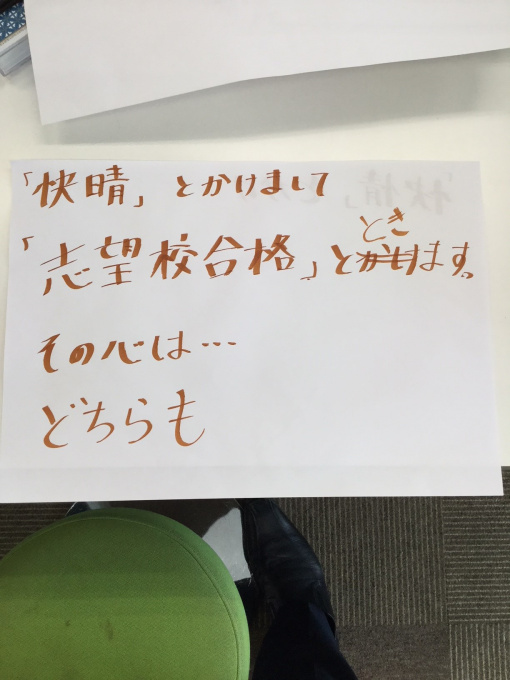 「快晴」とかけまして
「志望校合格」とときます。
その心は…
どちらも